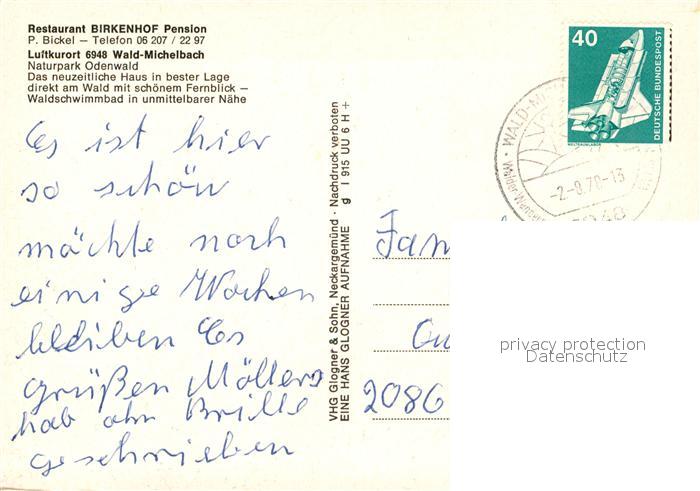 Restaurant BIRKENHOF Pension
P. Bickel – Telefon 06 207 / 22 97
Luftkurort 6948 Wald-Michelbach
Naturpark Odenwald
Das neuzeitliche Haus in bester Lage
direkt am Wald mit schönem Fernblick –
Waldschwimmbad in unmittelbarer Nähe
Es ist hier
so schön
mächte noch
einige Wochen
bleiben Es
grüßen Möllers
hab ohn Brille
geschrieben
VHG Glogner & Sohn, Neckargemünd · Nachdruck verboten
EINE HANS GLOGNER AUFNAHME g I 915 UU 6 H +
40
DEUTSCHE BUNDESPOST
WELTRAUMLABOR
WALD-MI
-2.-8.78-13
Fam
2086
privacy protection
Datenschutz